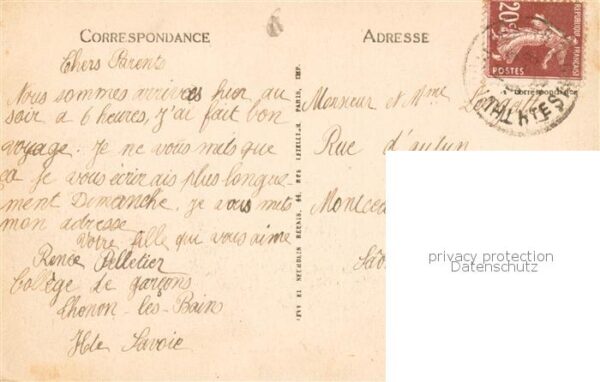 CORRESPONDANCE
Chers Parents
Nous sommes arrivées hier au
soir a 6 heures, j'ai fait bon
voyage. Je ne vous mets que
ça je vous écrirais plus longue-
ment Dimanche. je vous mets
mon adresse
Votre fille qui vous aime
Renée Pelletier
Collège de garçons
Thonon-les-Bain
Hte Savoie
ADRESSE
Monsieur et Mme
Rue d'autun
Montce
Sâo
20c
REPUBLIQUE FRANÇAISE
POSTES
correspondance
privacy protection
Datenschutz